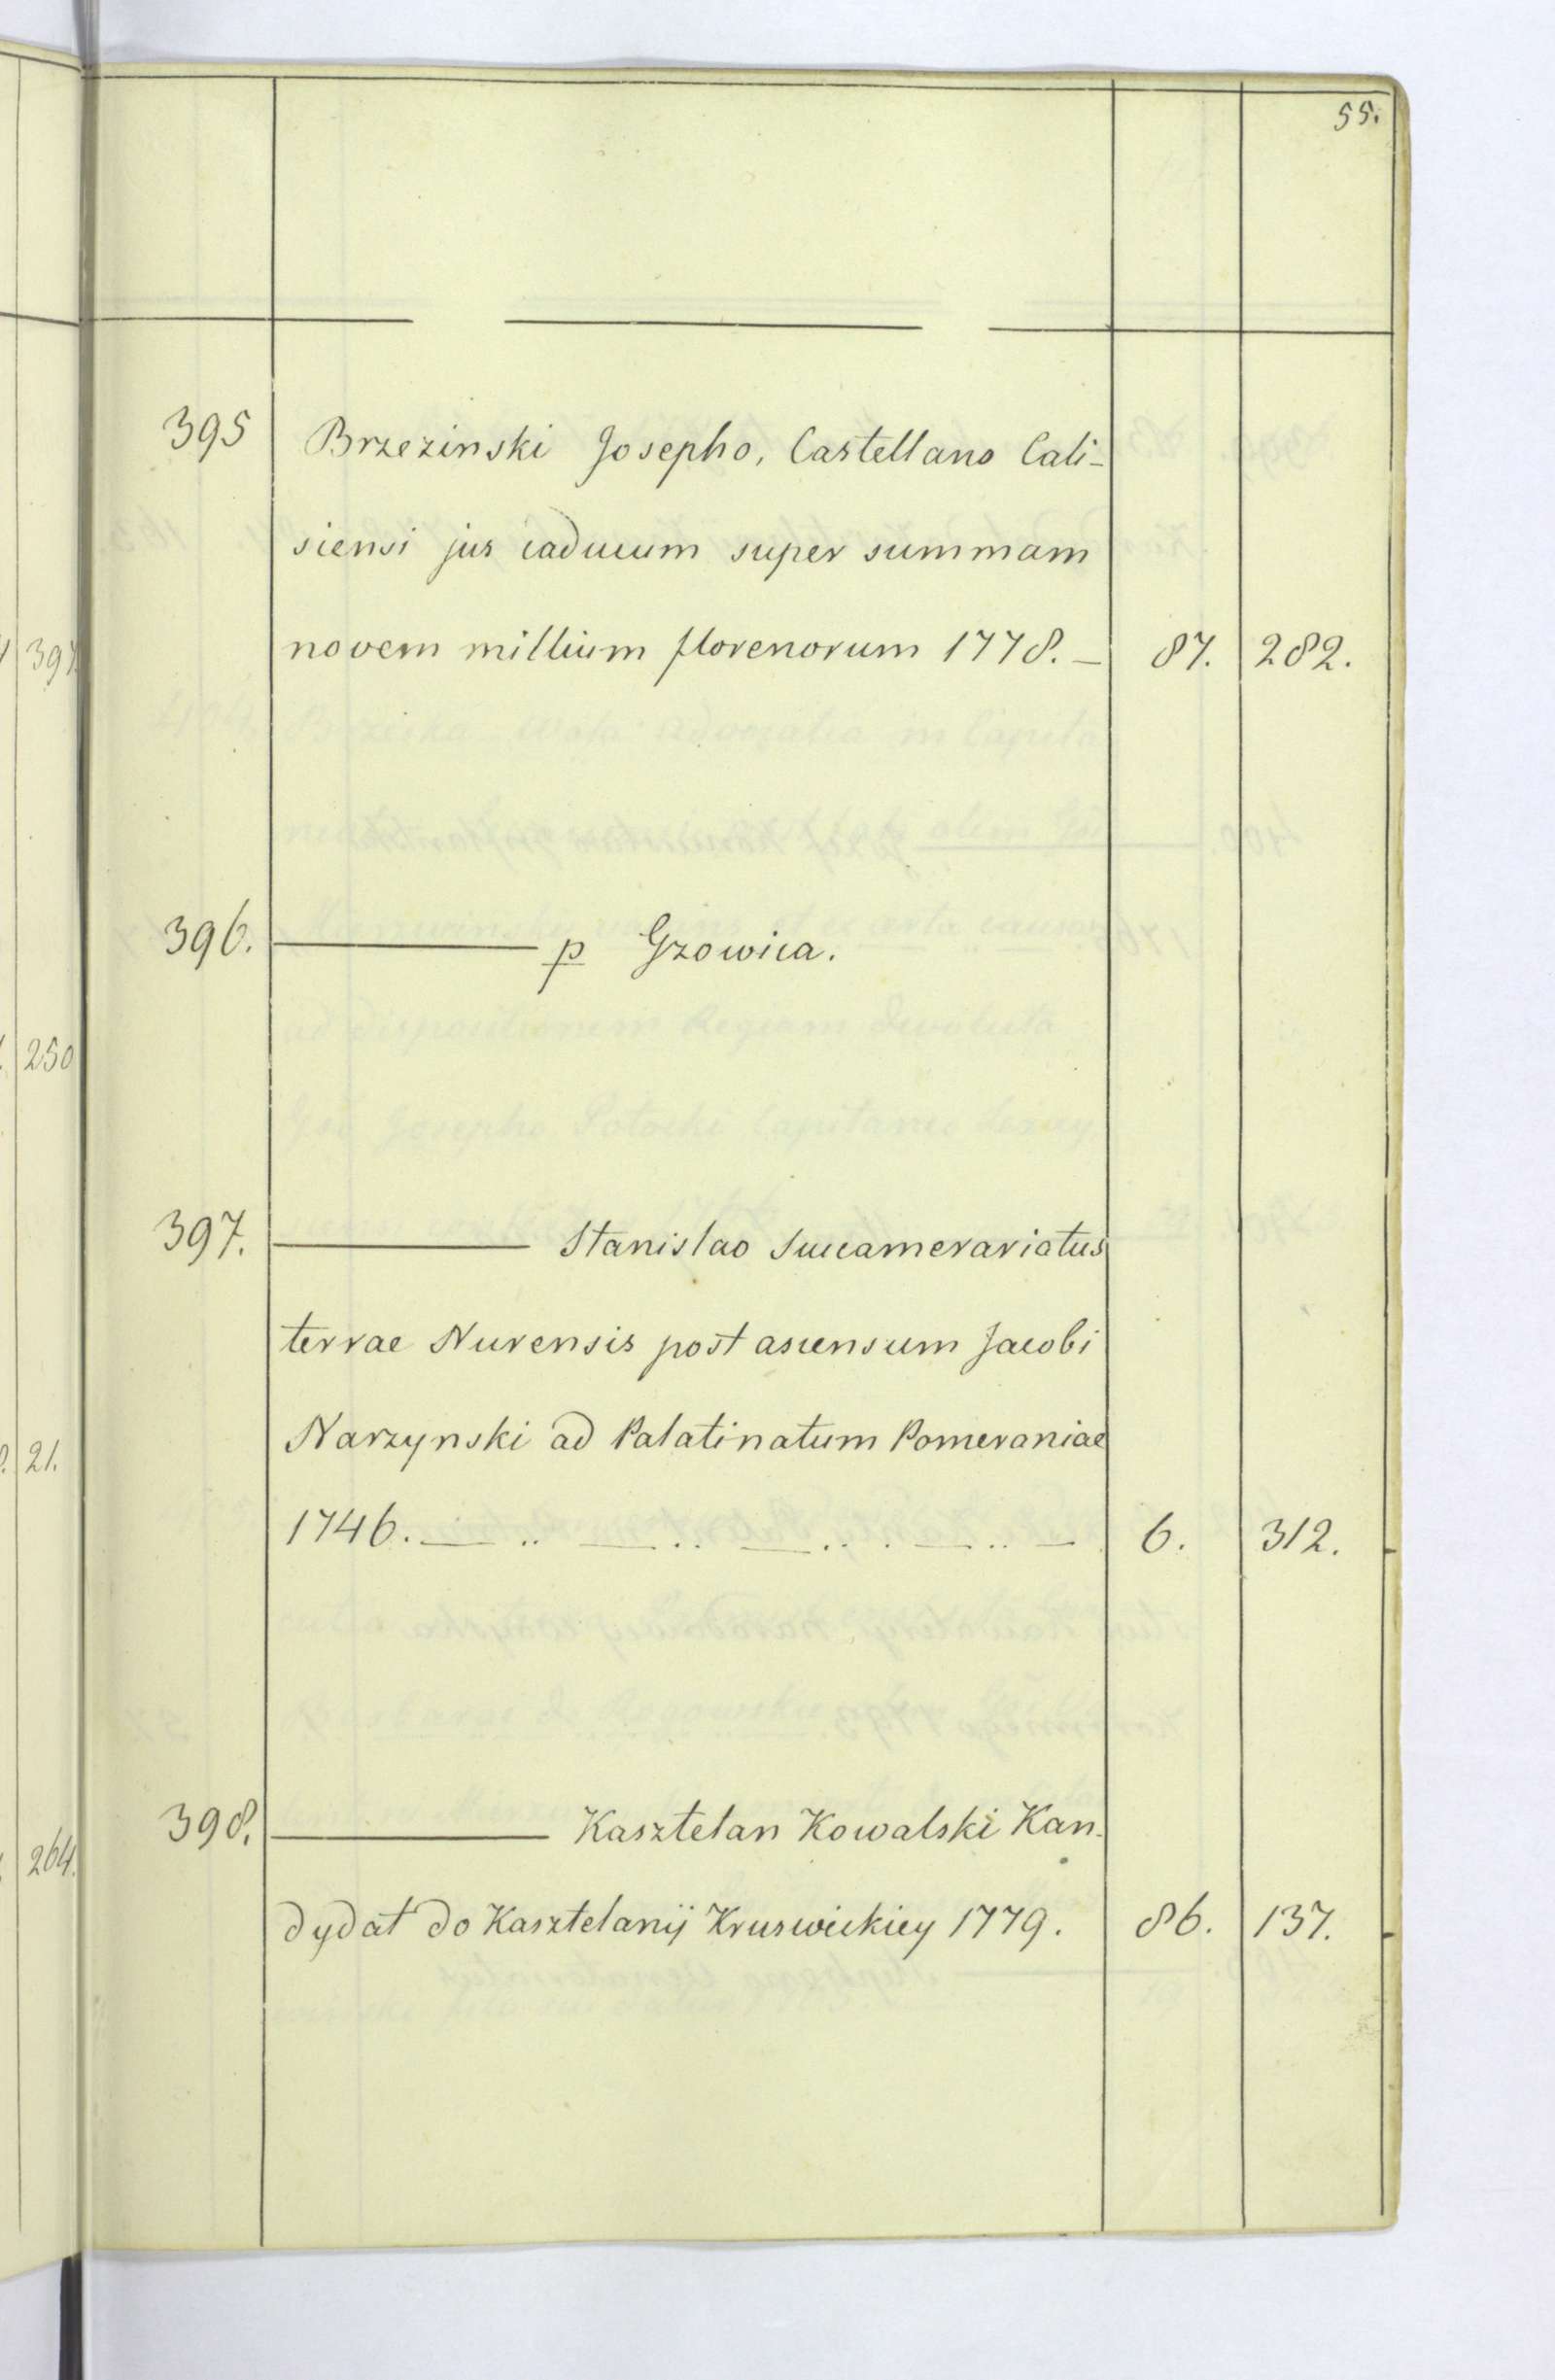 55.
395 Brzezinski Josepho, Castellano Cali-
siensi jus caducum super summam
novem millium florenorum 1778. — 87. 282.
396. ——— p Gzowica.
397. ——— Stanislao Succamerariatus
terrae Nurensis post ascensum Jacobi
Narzynski ad Palatinatum Pomeraniae
1746. — .. — .. — .. . — .. — 6. 312.
398. ——— Kasztelan Kowalski Kan-
dydat do Kasztelanij Kruswickiey 1779. 86. 137.
397
250
21.
264.